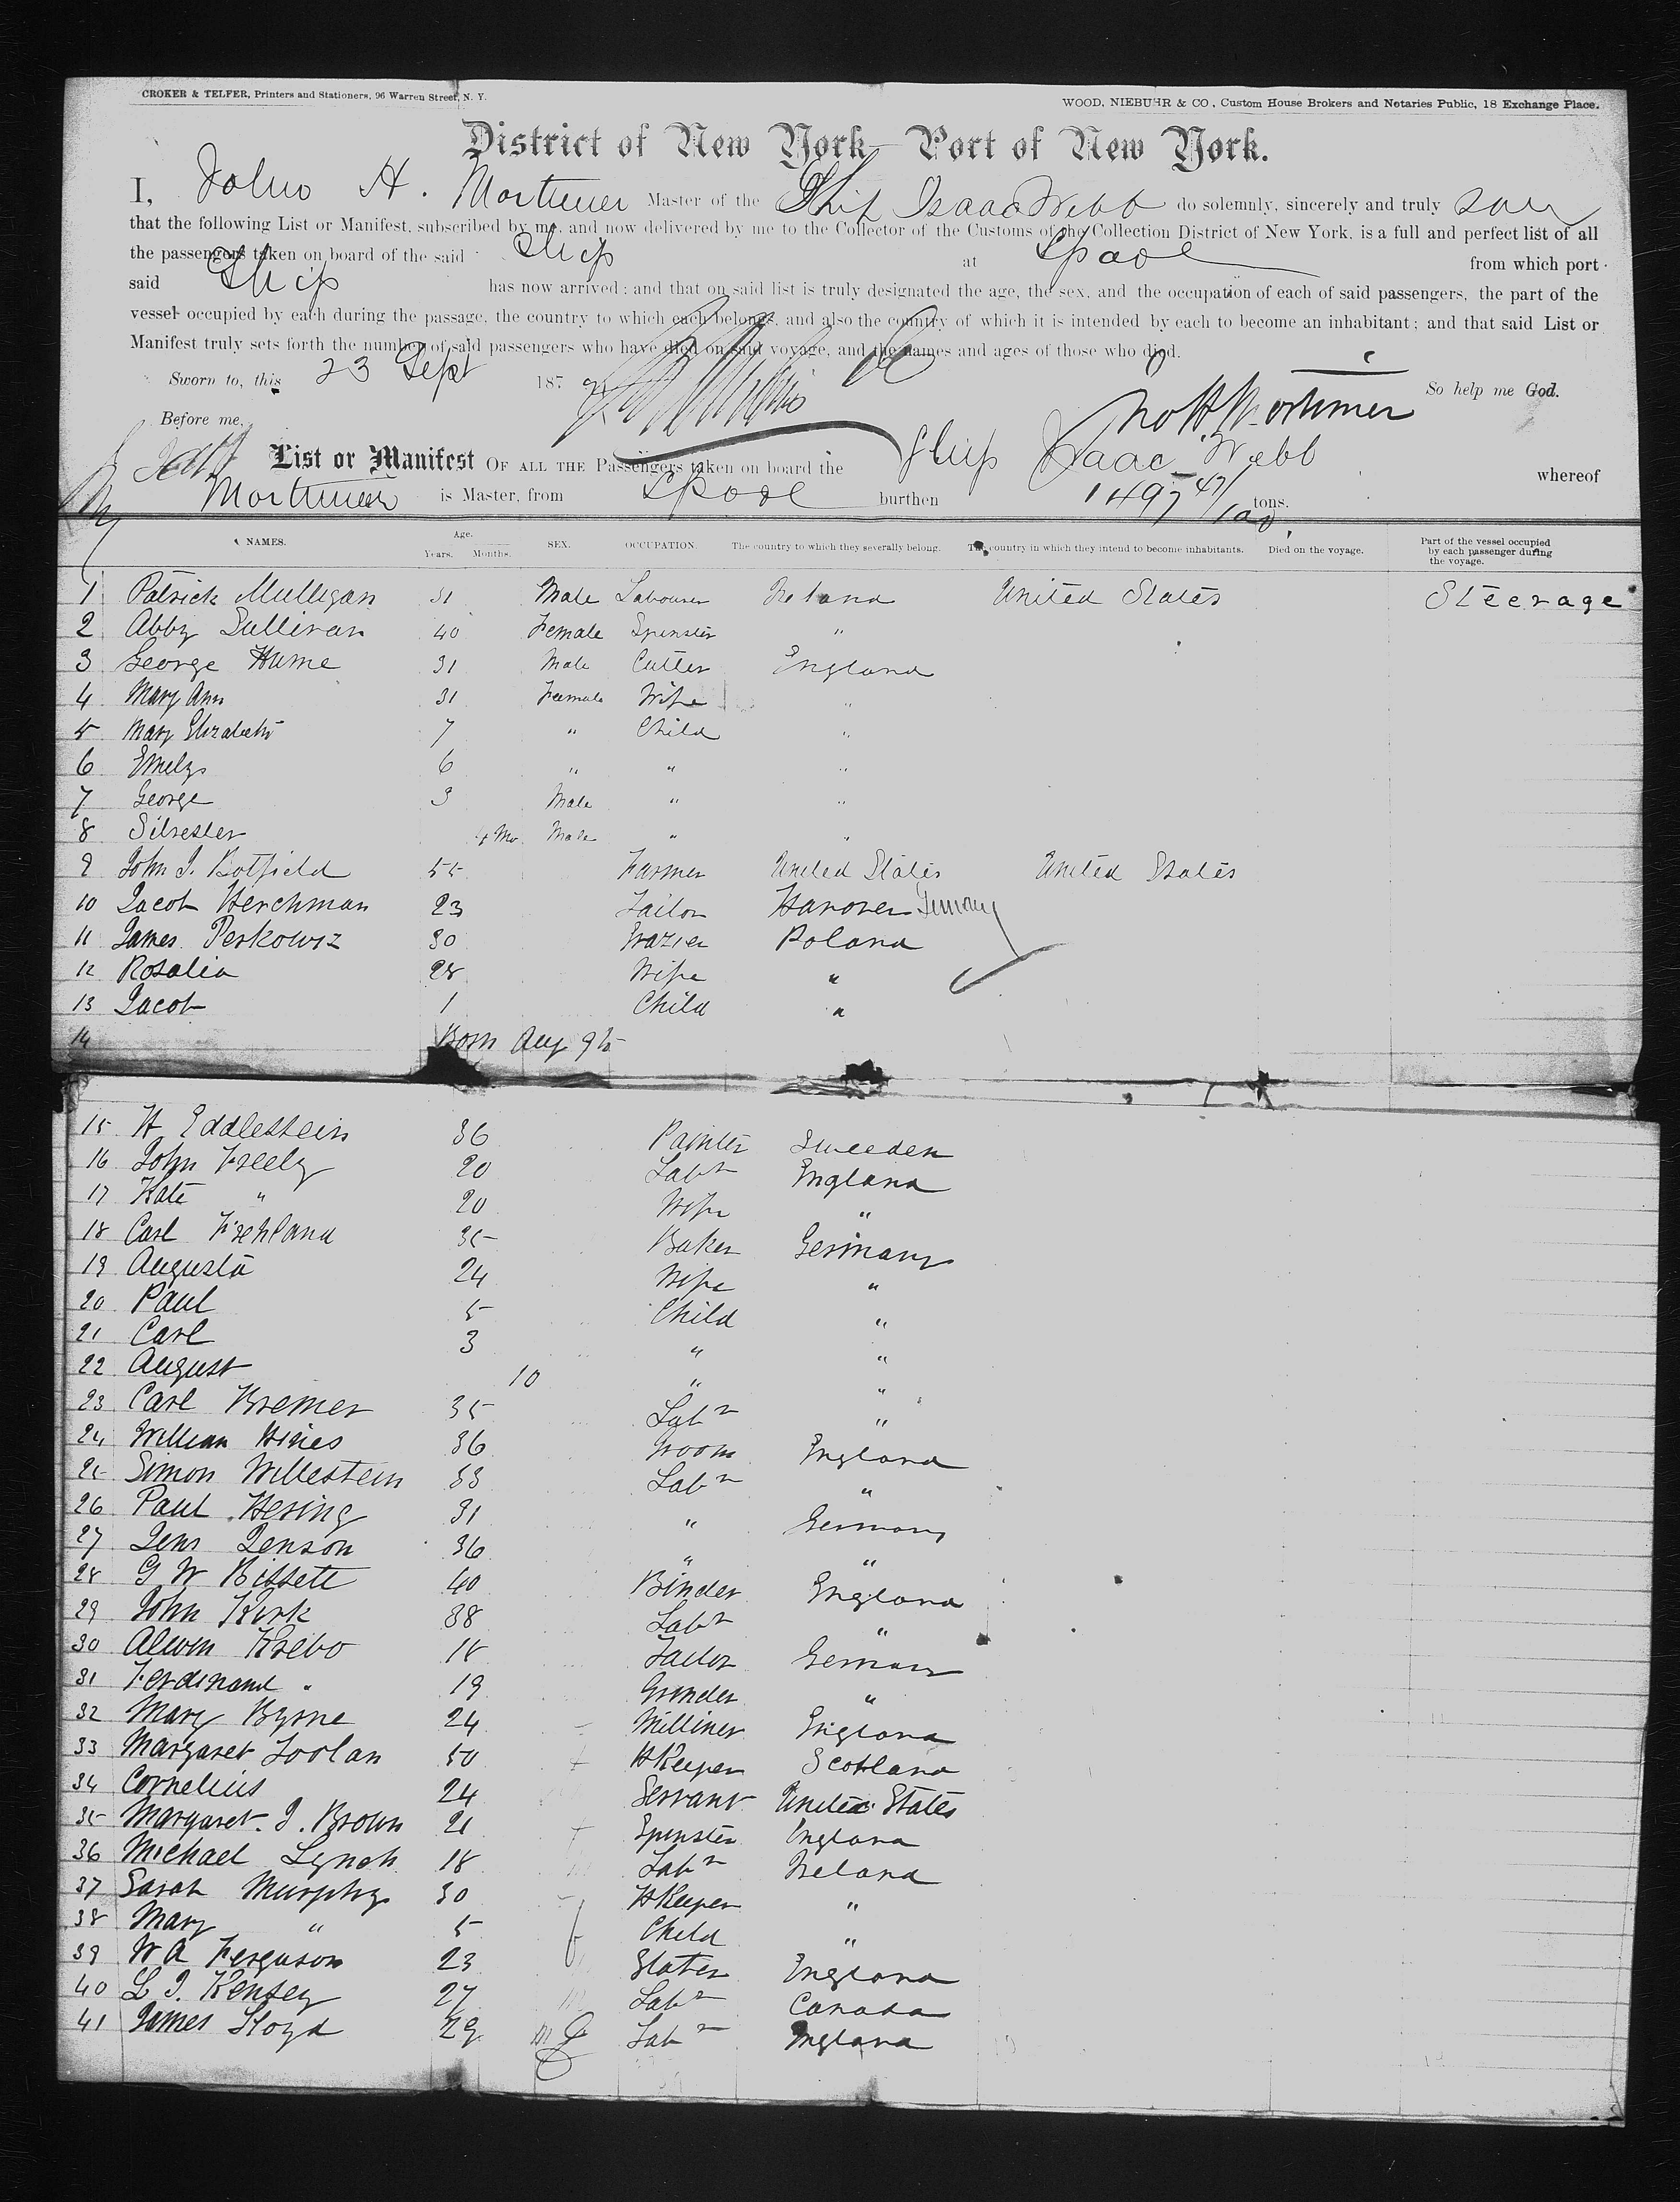 CROKER & TELFER, Printers and Stationers, 96 Warren Street, N. Y.
WOOD, NIEBUHR & CO., Custom House Brokers and Notaries Public, 18 Exchange Place.
District of New York—Port of New York.
I, John H. Mortimer Master of the Ship Isaac Webb do solemnly, sincerely and truly
that the following List or Manifest, subscribed by me, and now delivered by me to the Collector of the Customs of the Collection District of New York, is a full and perfect list of all
the passengers taken on board of the said Ship at Lpool from which port
said Ship has now arrived; and that on said list is truly designated the age, the sex, and the occupation of each of said passengers, the part of the
vessel occupied by each during the passage, the country to which each belongs, and also the country of which it is intended by each to become an inhabitant; and that said List or
Manifest truly sets forth the number of said passengers who have died on said voyage, and the names and ages of those who died.
Sworn to, this 23 Sept 187 So help me God.
Before me, Jno H Mortimer
List or Manifest OF ALL THE Passengers taken on board the Ship Isaac Webb whereof
Mortimer is Master, from Lpool burthen 1497 47/100 tons.
NAMES. Age. Years. Months. SEX. OCCUPATION. The country to which they severally belong. The country in which they intend to become inhabitants. Died on the voyage. Part of the vessel occupied by each passenger during the voyage.
1 Patrick Mulligan 31 Male Labourer Ireland United States Steerage
2 Abby Sullivan 40 Female Spinster "
3 George Hume 31 Male Cutler England
4 Mary Ann 31 Female Wife "
5 Mary Elizabeth 7 " Child "
6 Emely 6 " " "
7 George 3 Male " "
8 Silvester 4 Mo. Male " "
9 John J. Botfield 55 Farmer United States United States
10 Jacob Herchman 23 Tailor Hanover Germany
11 James Perkowiz 30 Grazier Poland
12 Rosalia 28 Wife "
13 Jacob 1 Child "
14 Born Aug 9th
15 H Eddlestein 36 Painter Sweeden
16 John Freely 20 Labr England
17 Kate " 20 Wife "
18 Carl 35 Baker Germany
19 Augusta 24 Wife "
20 Paul 5 Child "
21 Carl 3 " "
22 August 10 " "
23 Carl Kremer 35 Labr "
24 William Hines 36 Groom England
25 Simon Willestein 33 Labr "
26 Paul Hesing 31 " Germany
27 Jens Jenson 36 " "
28 G W Bissett 40 Binder England
29 John Kirk 38 Labr "
30 Alwin Krebo 18 Tailor Germany
31 Ferdinand " 19 Grinder "
32 Mary Byrne 24 Milliner England
33 Margaret Toolan 50 HKeeper Scotland
34 Cornelius 24 Servant United States
35 Margaret J. Brown 21 Spinster England
36 Michael Lynch 18 Labr Ireland
37 Sarah Murphy 30 HKeeper "
38 Mary " 5 Child "
39 W A Ferguson 23 Slater England
40 L J. Kensey 27 Labr Canada
41 James Lloyd 29 Labr England